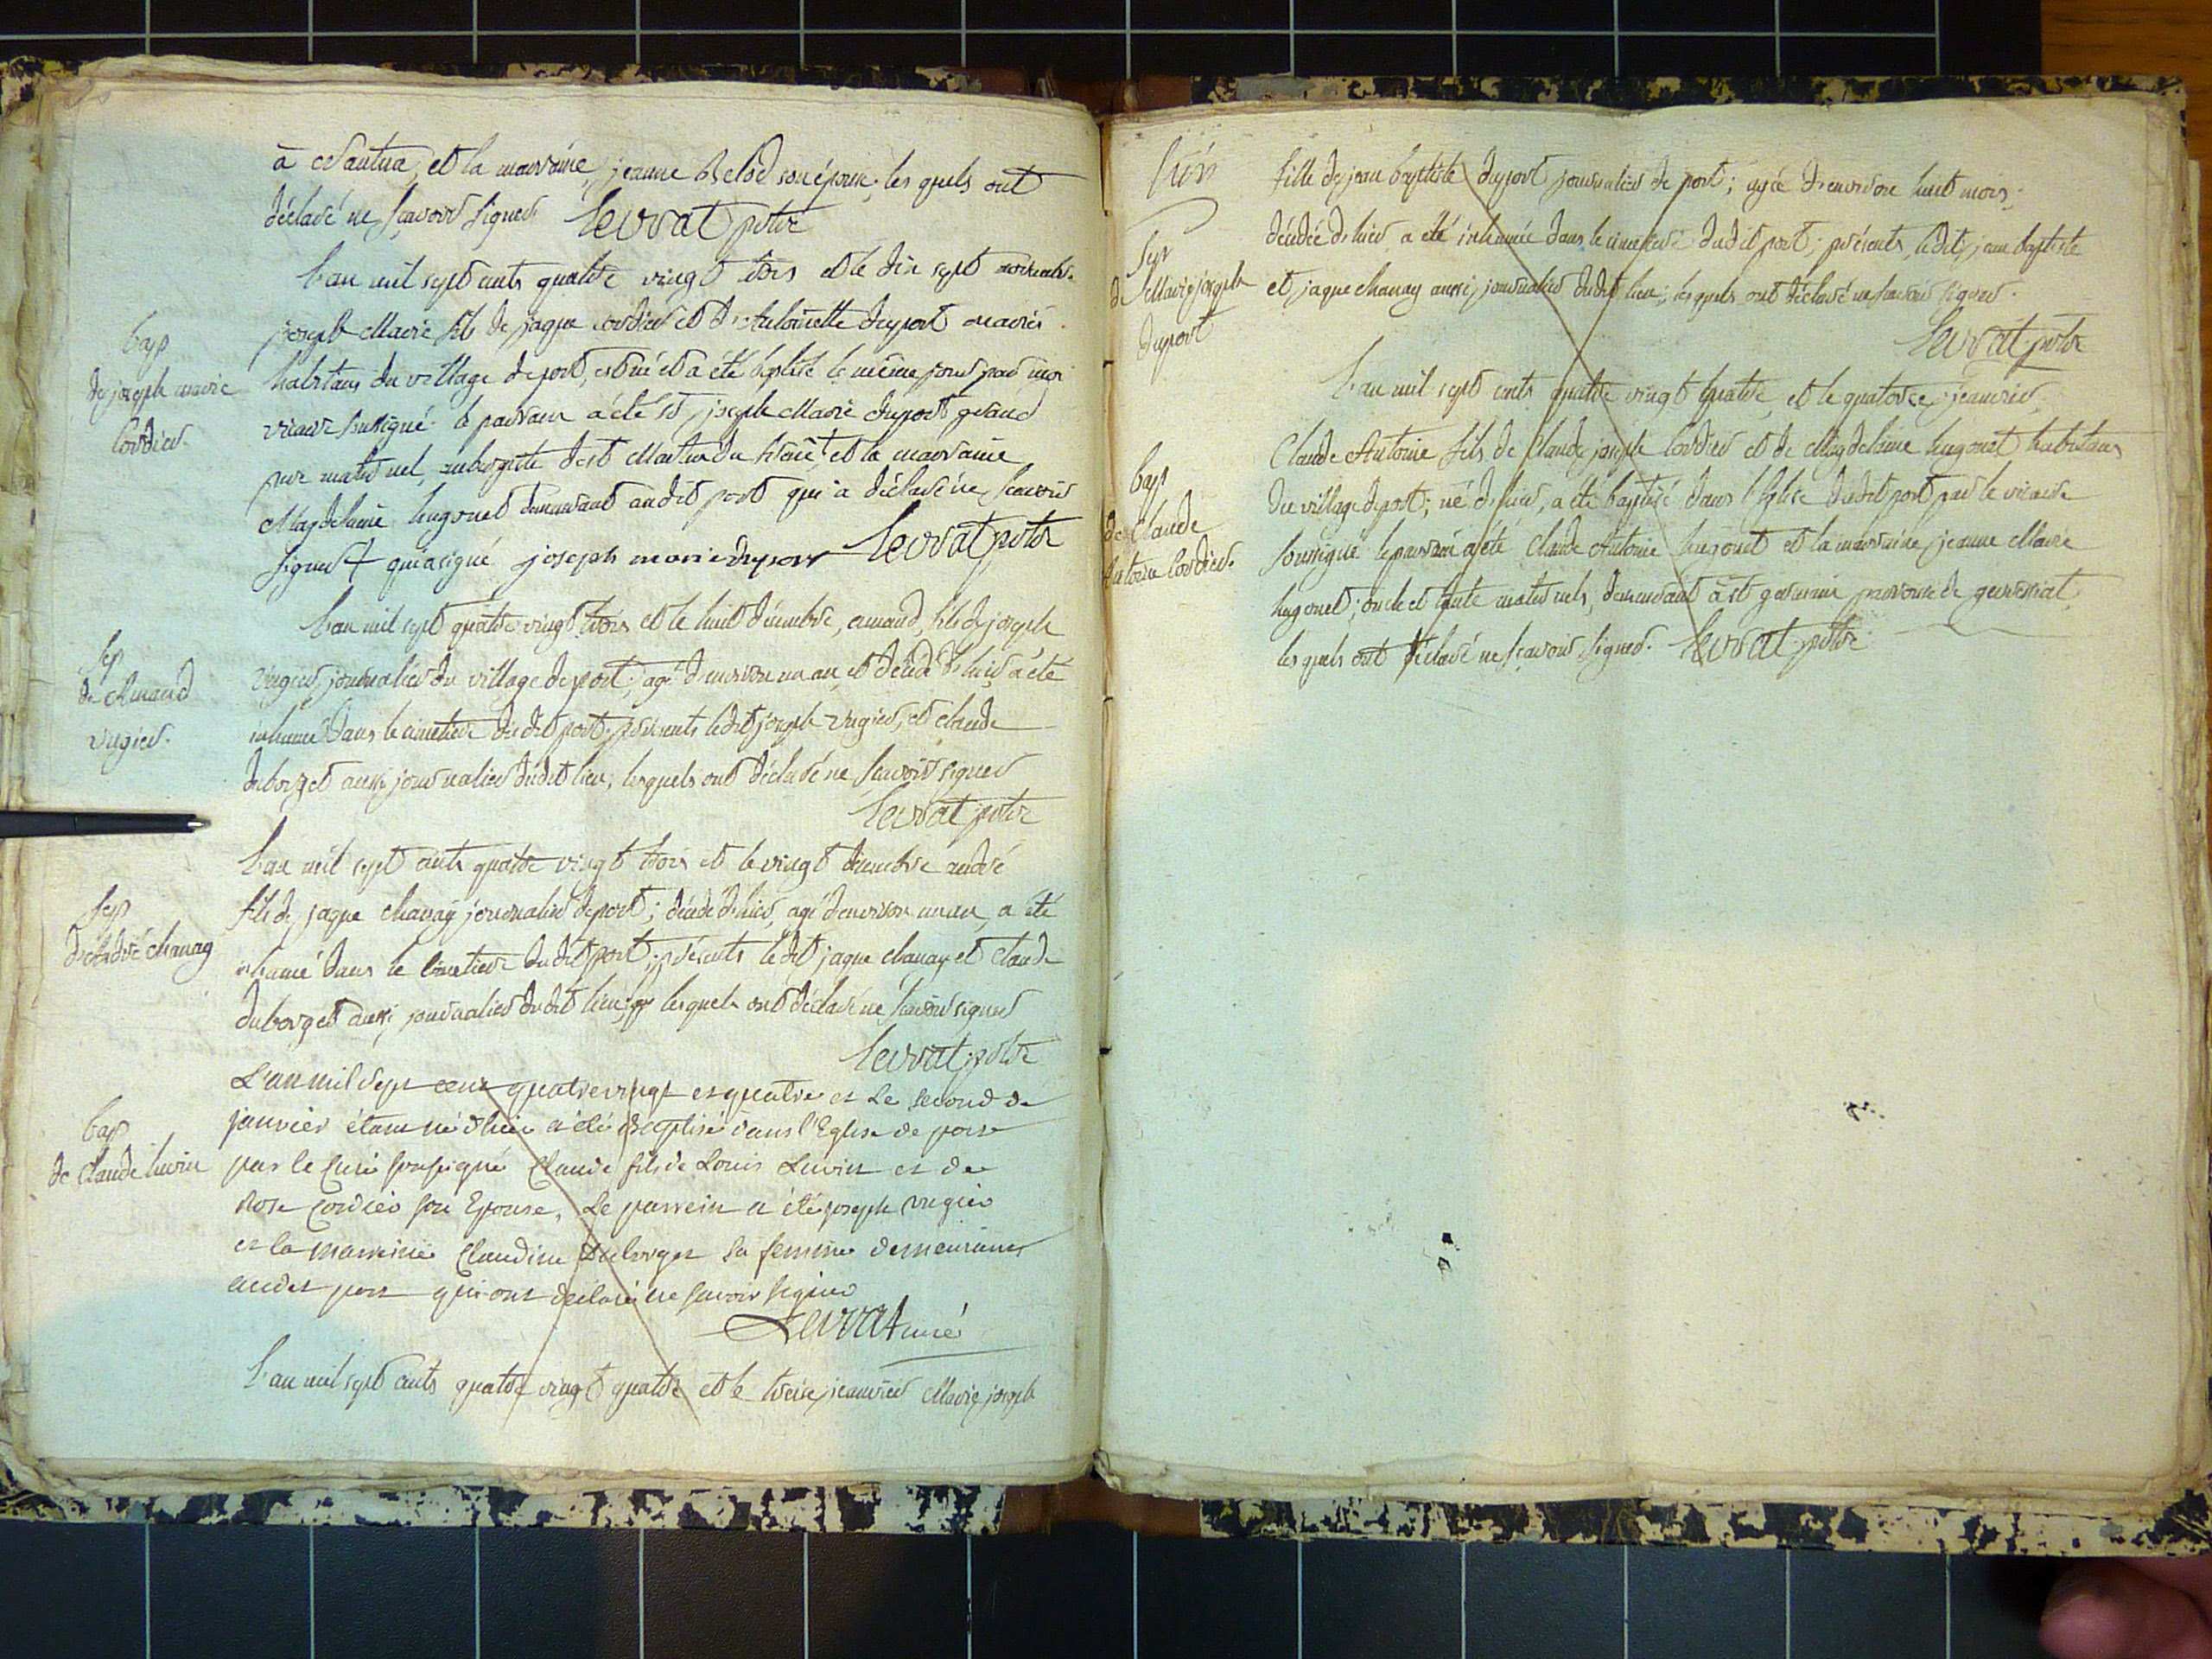 à Nantua, et la marraine, jeanne Belod son épouse; les quels ont
déclaré ne sçavoir signer. Levrat ptre
L'an mil sept cents quatre vingt trois et le dix sept novembre
joseph Marie fils de jaque cordier et d'Antoinette duport mariés
bap
de joseph marie
Cordier.
habitans du village de port, est né et a été baptisé le même jour par moi
vicaire soussigné. le parrain a été sr joseph Marie duport grand
pere maternel, aubergiste de st Martin du frêne † et la marraine
Magdelaine hugonet demeurant audit port qui a déclaré ne scavoir
signer † qui a signé joseph marie duport Levrat ptre
L'an mil sept quatre vingt trois et le huit décembre, amand, fils de joseph
Sep
de Amand
vugier.
vugier journalier du village de port; agé d'environ un an, et décédé d'hier a été
inhumé dans le cimetiere du dit port. présents ledit joseph vugier, et claude
duborget aussi journalier dudit lieu; lesquels ont déclaré ne scavoir signer
Levrat ptre
L'an mil sept cents quatre vingt trois et le vingt décembre andré
Sep
de André chanay
fils de jaque chanay journalier de port; décédé d'hier, agé d'environ un an, a été
inhumé dans le cimetiere du dit port; présents ledit jaque chanay et claude
duborget aussi journalier dudit lieu; lesquels ont déclaré ne scavoir signer
Levrat ptre
L'an mil sept cent quatre vingt et quatre et Le second de
janvier étant né d'hier a été Baptisé dans l'Eglise de port
bap
de Claude luvin
par le Curé soussigné Claude fils de Louis Luvin et de
Rose Cordier son Epouse, Le parrein a été joseph vugier
et la marreine Claudine Duborget sa femme demeurants
audit port qui ont déclaré ne savoir signer
Levrat curé
L'an mil sept cents quatre vingt quatre et le treize jeanvier Marie joseph
Sep
de Marie joseph
duport
fille de jean baptiste duport journalier de port; agée d'environ huit mois;
décédée d'hier, a été inhumée dans le cimetiere dudit port; présents, ledit jean baptiste
et jaque chanay aussi journalier dudit lieu; lesquels ont déclaré ne scavoir signer.
Levrat ptre
L'an mil sept cents quatre vingt quatre, et le quatorze jeanvier
bap
de Claude
Antoine Cordier.
Claude Antoine fils de Claude joseph Cordier et de Magdelaine hugonet habitans
du village de port; né d'hier, a été baptisé dans l'Eglise dudit port par le vicaire
soussigné le parrain a été Claude Antoine hugonet et la marraine jeanne Marie
hugonet; oncle et tante maternels, demeurant à st germain paroisse de
les quels ont déclaré ne scavoir signer. Levrat ptre